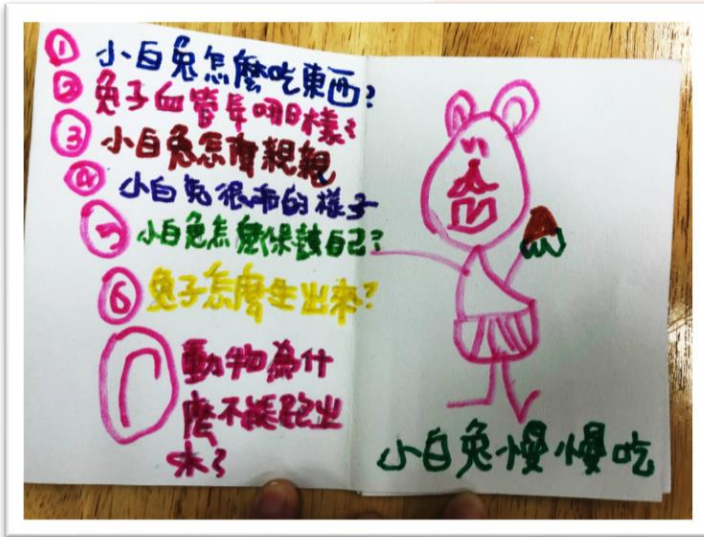 ① 小白兔怎麼吃東西?
② 兔子血管長哪樣?
③ 小白兔怎麼親親
④ 小白兔很布的樣子
⑤ 小白兔怎麼保護自己?
⑥ 兔子怎麼生出來?
7 動物為什
麼不能跑出
來?
小白兔慢慢吃